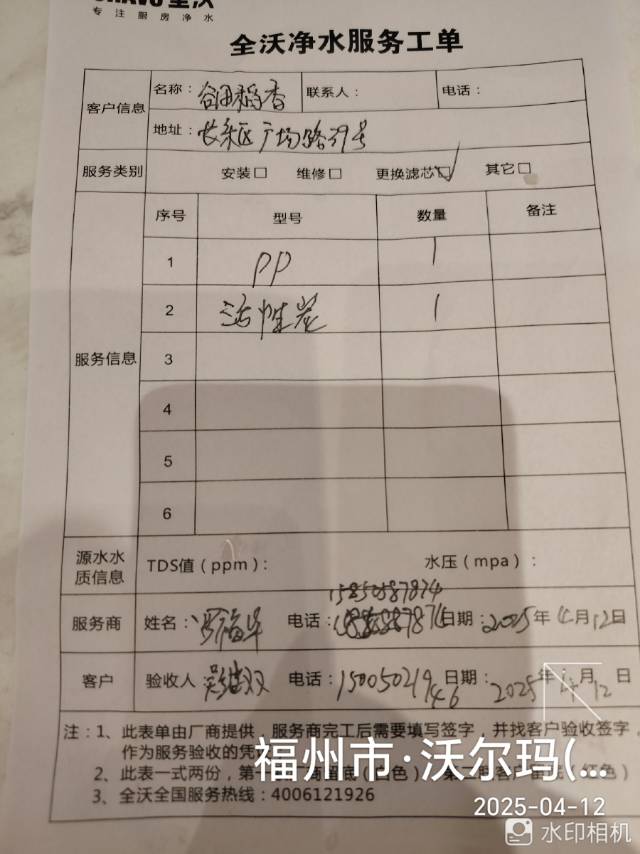 专注厨房净水
全沃净水服务工单
客户信息
名称：谷田稻香 联系人： 电话：
地址：长乐区广场路39号
服务类别 安装□ 维修□ 更换滤芯☑ 其它□
服务信息
序号 型号 数量 备注
1 PP 1
2 活性炭 1
3
4
5
6
源水水质信息 TDS值（ppm）： 水压（mpa）：
15850587874
服务商 姓名：罗福华 电话： 日期：2025年4月12日
客户 验收人 电话：15005021946 日期：2025年4月12日
注：1、此表单由厂商提供，服务商完工后需要填写签字，并找客户验收签字，
作为服务验收的凭
2、此表一式两份，第一
3、全沃全国服务热线：4006121926
福州市·沃尔玛(...
2025-04-12
水印相机